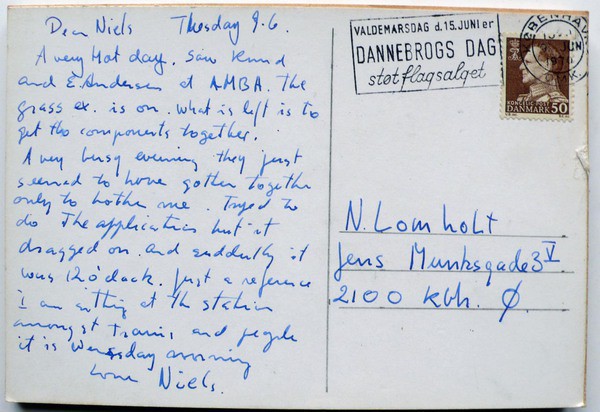 Dear Niels Thusday 9.6.
A very Hot day. Saw Knud
and E. Andersen at AMBA. The
grass ex. is on. what is left is to
get the components together.
A very busy evening they just
seemed to have gotten together
only to bother me. Tryed to
do The application but it
dragged on. and suddently it
was 12 o'clock. Just a reference
I am sitting at the station
amongst trains and people
it is Wensday morning
Love Niels.
VALDEMARSDAG d. 15. JUNI er
DANNEBROGS DAG
støt flagsalget
KØBENHAVN
JUN
KONGELIG POST
DANMARK 50
N. Lomholt
Jens Munksgade 3 V
2100 Kbh. Ø